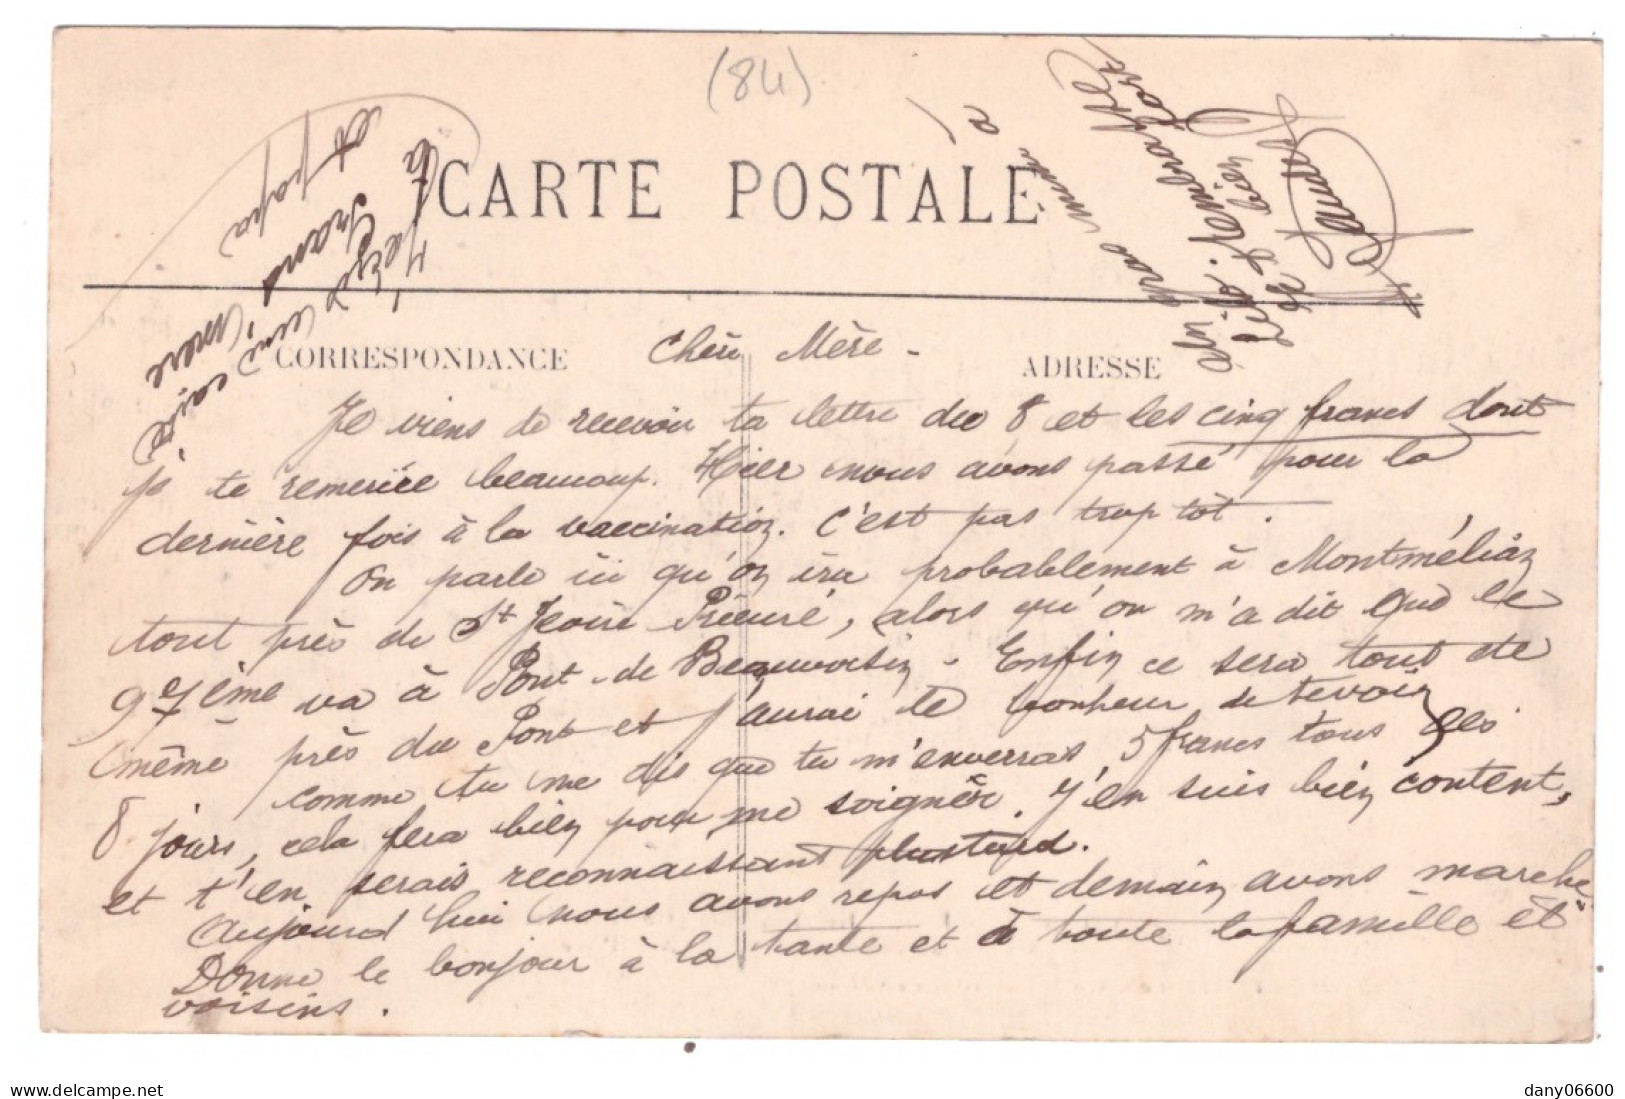 (84)
CARTE POSTALE
CORRESPONDANCE
ADRESSE
Chère Mère -
Je viens de recevoir ta lettre du 8 et les cinq francs dont
je te remercie beaucoup. Hier nous avons passé pour la
dernière fois à la vaccination. C'est pas trop tôt.
On parle ici qu'on ira probablement à Montmélian
tout près de St Jeoire Prieuré, alors qu'on m'a dit que le
97ème va à Pont-de Beauvoisin - Enfin ce sera tout de
même près du Pont et j'aurai le bonheur de te voir
comme tu me dis que tu m'enverras 5 francs tous les
8 jours, cela fera bien pour me soigner. J'en suis bien content,
et t'en serais reconnaissant plustard.
Aujourd'hui nous avons repos et demain avons marche
Donne le bonjour à la tante et à toute la famille et
voisins.
et papa
grand mère
Un gros mimi à
qui t'embrasse
bien fort
Claudy
dany06600
www.delcampe.net